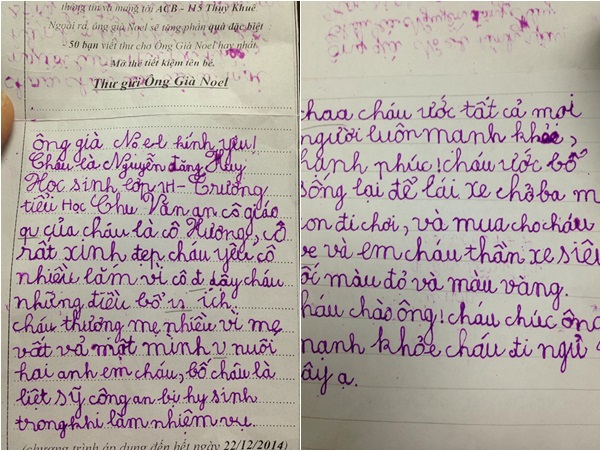 thông tin và mang tới ACB - 115 Thụy Khuê
Ngoài ra, ông già Noel sẽ tặng phần quà đặc biệt
- 50 bạn viết thư cho Ông Già Noel hay nhất.
Mở thẻ tiết kiệm tên bé.
Thư gửi Ông Già Noel
ông già Nô el kính yêu!
Cháu là Nguyễn đăng Huy
Học sinh lớp 1H - Trường
tiểu Học Chu Văn an cô giáo
qu của cháu là cô Hương, Cô
rất xinh đẹp cháu yêu cô
nhiều lắm vì cô đ dậy cháu
những điều bổ ích
cháu thương mẹ nhiều vì mẹ
vất vả một mình nuôi
hai anh em cháu, bố cháu là
liệt sỹ công an bị hy sinh
trong khi làm nhiệm vụ.
(chương trình áp dụng đến hết ngày 22/12/2014)
cháu ước tất cả mọi
người luôn mạnh khỏe,
hạnh phúc! cháu ước bố
sống lại để lái xe chở ba m
on đi chơi, và mua cho cháu
xe và em cháu thần xe siêu
ốc màu đỏ và màu vàng.
háu chào ông! cháu chúc ông
mạnh khỏe cháu đi ngủ
ây ạ.